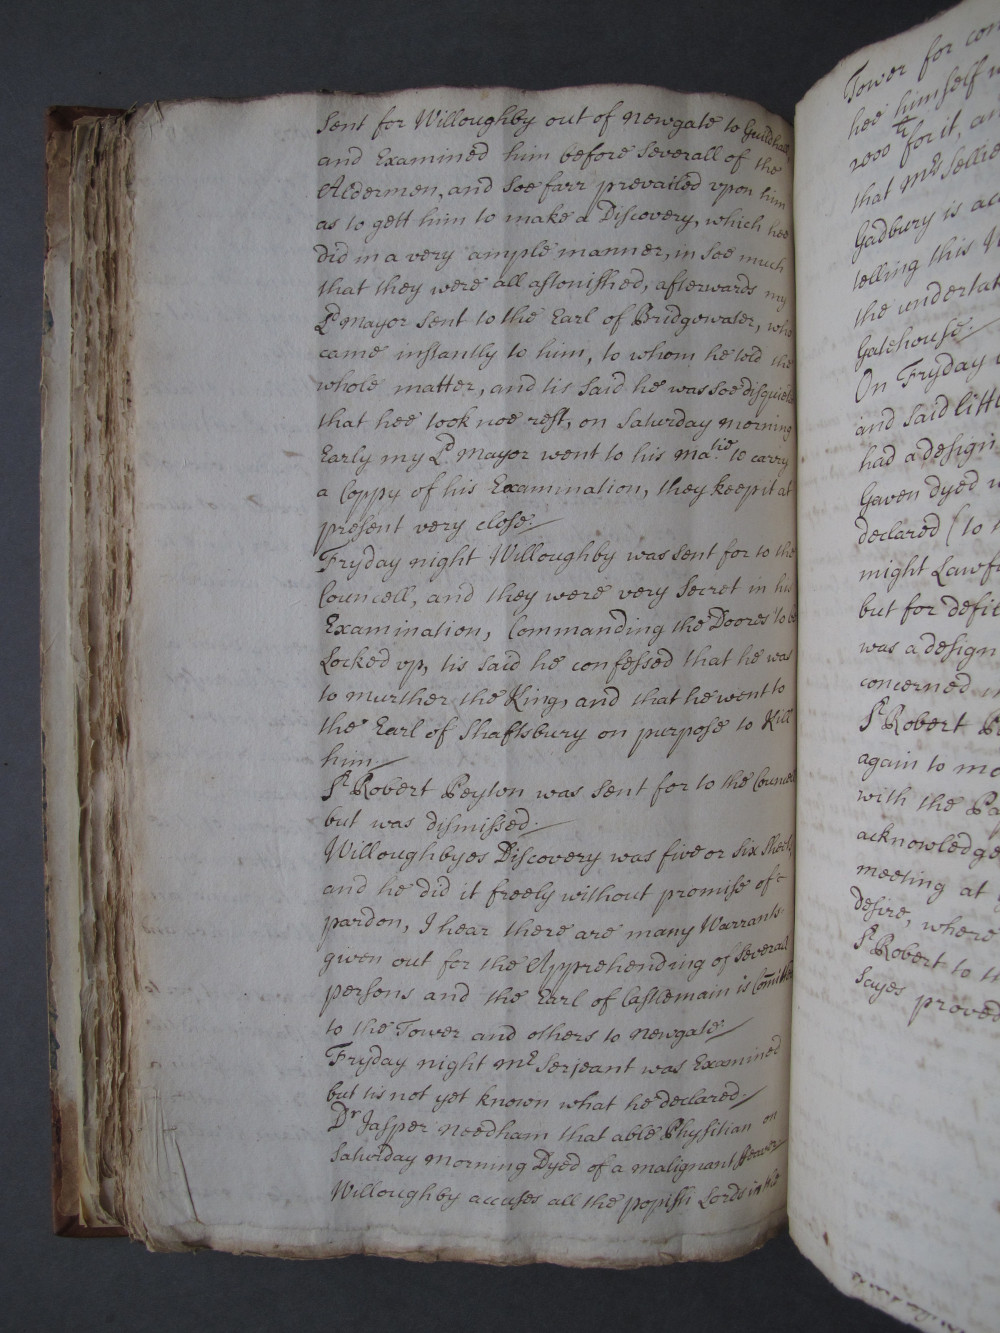 Sent for Willoughby out of Newgate to Guildhall,
and Examined him before Severall of the
Aldermen, and Soe farr prevailed vpon him
as to gett him to make a Discovery, which hee
did in a very ample manner, in soe much
that they were all astonished, afterwards my
Ld Mayor Sent to the Earl of Bridgewater, who
came instantly to him, to whom he told the
whole matter, and tis said he was soe disquieted
that hee took noe rest, on Saturday morning
Early my Ld Mayor went to his Matie to carry
a Coppy of his Examination, they keep it at
present very close.
Fryday night Willoughby was sent for to the
Councell, and they were very Secret in his
Examination, Commanding the Doores to be
Locked vp, tis said he confessed that he was
to murther the King, and that he went to
the Earl of Shaftsbury on purpose to Kill
him.
Sr Robert Peyton was sent for to the Councell
but was dismissed.
Willoughbyes Discovery was five or six Sheets,
and he did it freely without promise of
pardon, I hear there are many Warrants
given out for the Apprehending of Severall
persons and the Earl of Castlemain is Comitted
to the Tower and others to Newgate.
Fryday night Mr Serjeant was Examined
but tis not yet known what he declared.
Dr Jasper Needham that able Physitian on
Saturday morning Dyed of a malignant Feaver
Willoughby accuses all the popish Lords in the
Tower for
hee himself
2000 for it,
that Mrs
Gadbury is
telling this
the
Gatehouse.
On Fryday
and said
had a design
Gaven dyed
declared (to
might
but for
was a design
concerned
Sr Robert
again to
with the

meeting at
desire, where
Sr Robert to
sayes proved